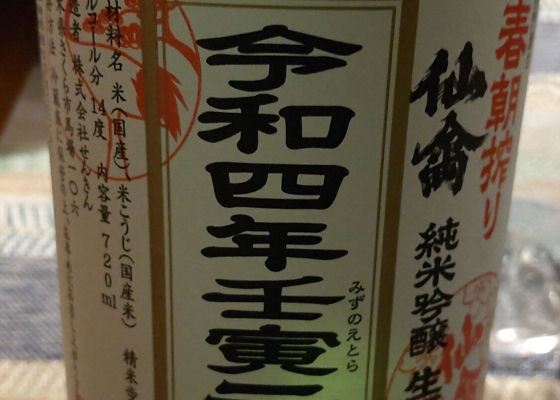 春朝搾り
仙禽
純米吟醸 生
令和四年壬寅二
みずのえとら
材料名 米(国産)、米こうじ(国産米) 精米歩
ルコール分 14度 内容量 720ml
造者 株式会社せんきん
木県さくら市馬場一〇六